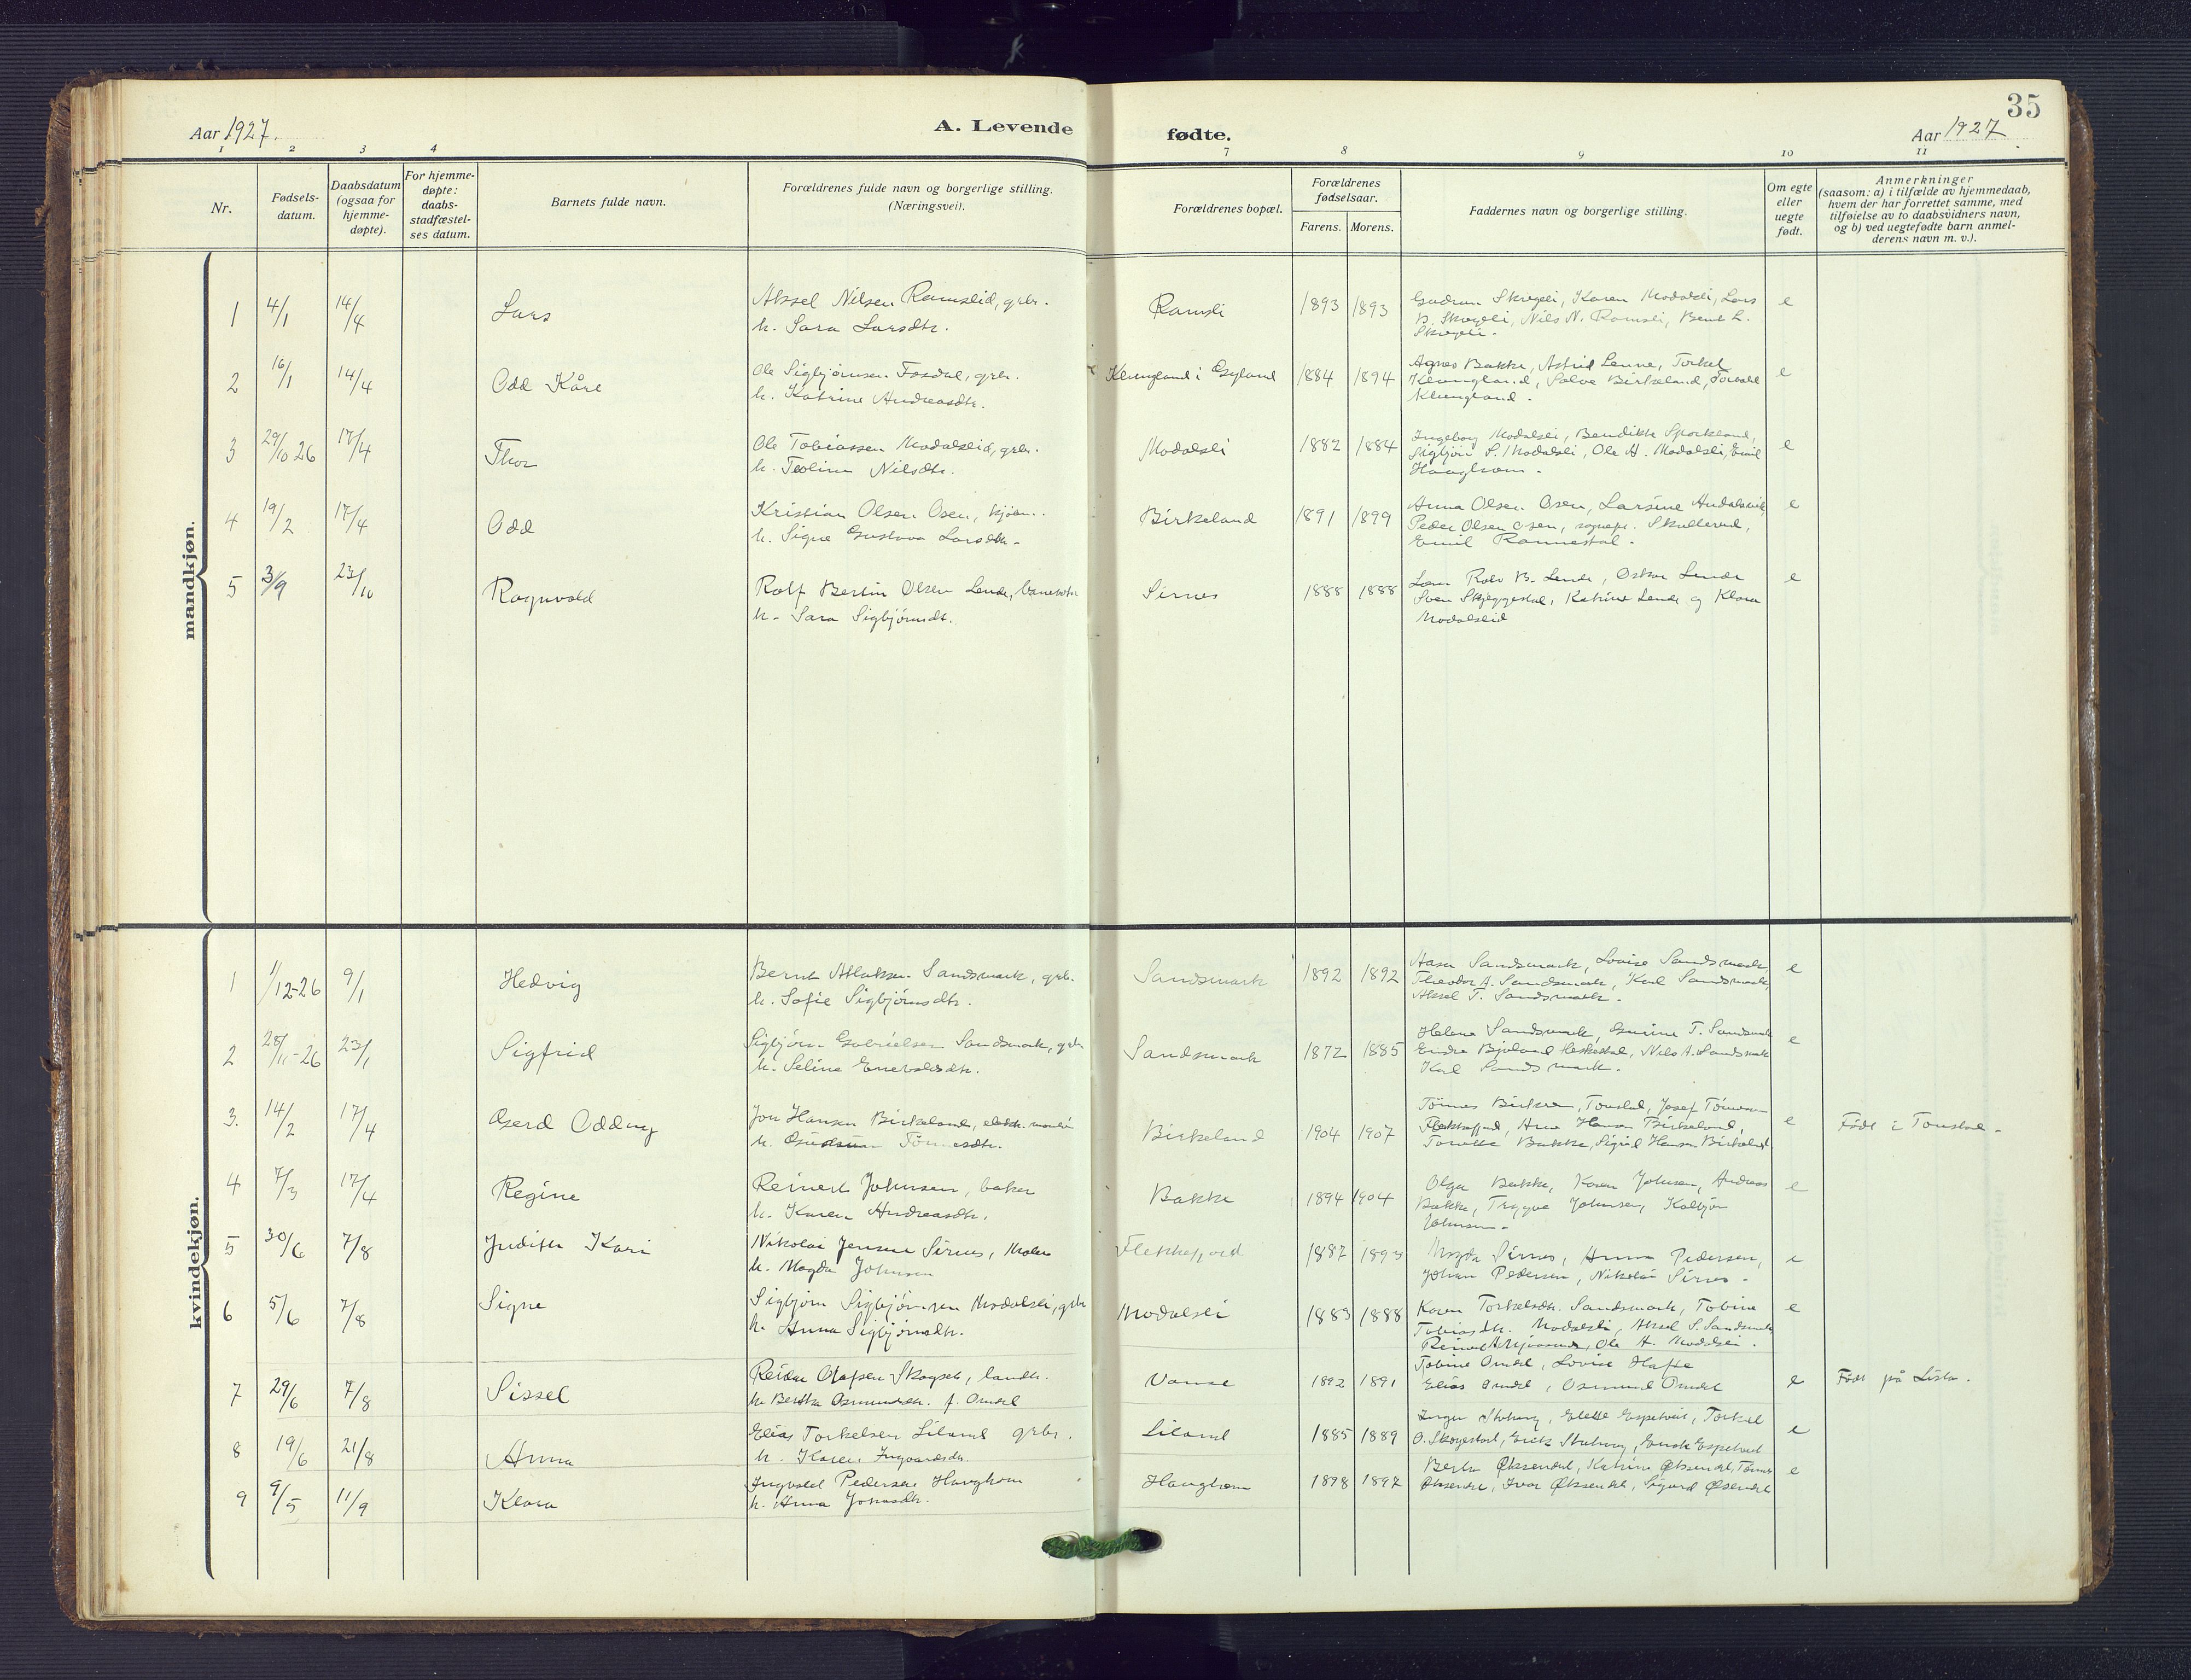 35
Aar 1927.
A. Levende
fødte.
Aar 1927
1 2 3 4
7 8 9 10 11
Nr.
Fødsels-
datum.
Daabsdatum
(ogsaa for
hjemme-
døpte).
For hjemme-
døpte:
daabs-
stadfæstel-
ses datum.
Barnets fulde navn.
Forældrenes fulde navn og borgerlige stilling.
(Næringsvei).
Forældrenes bopæl.
Forældrenes
fødselsaar.
Farens. Morens.
Faddernes navn og borgerlige stilling.
Om egte
eller
uegte
født.
Anmerkninger
(saasom: a) i tilfælde av hjemmedaab,
hvem der har forrettet samme, med
tilføielse av to daabsvidners navn,
og b) ved uegtefødte barn anmel-
derens navn m. v.).
mandkjøn.
1 4/1 14/4 Lars
Aksel Nilsen Ramsleid, grbr.
h. Sara Larsdtr.
Ramsli 1893 1893
Gudrun Skregeli, Karen Modalsli, Lars
B. Skregeli, Nils N. Ramsli, Bent L.
Skregeli.
e
2 16/1 14/4 Odd Kåre
Ole Sigbjörnsen Fosdal, grbr.
h. Katrine Andreasdtr.
Klungland i Gyland 1884 1894
Agnes Bakke, Astrid Lenne, Torkel
Klungland, Salve Birkeland,
Klungland.
e
3 29/10 26 17/4 Thor
Ole Tobiassen Modalsleid, grbr.
h. Teoline Nilsdtr.
Modalsli 1882 1884
Ingeborg Modalsli, Bendikte
Sigbjörn S. Modalsli, Ole A. Modalsli, Emil
Haughom.
e
4 19/2 17/4 Odd
Kristian Olsen Osen,
h. Signe Gustava Larsdtr.
Birkeland 1891 1899
Anna Olsen Osen, Larsine
Peder Olsen Osen, sognepr. Skullerud,
Emil Rannestad.
e
5 3/9 23/10 Ragnvald
Rolf Bertin Olsen Lende,
h. Sara Sigbjörnsdtr.
Sirnes 1888 1888
Rolv B. Lende, Oskar Lende
Sven Skjeggestad, Katrine Lende og Klara
Modalsleid
e
kvindekjøn.
1 1/12-26 9/1 Hedvig
Bernt Atlaksen Sandsmark, grbr.
h. Sofie Sigbjörnsdtr.
Sandsmark 1892 1892
Aasa Sandsmark, Lovise Sandsmark,
Theodor A. Sandsmark, Karl Sandsmark,
Aksel T. Sandsmark.
e
2 28/11-26 23/1 Sigfrid
Sigbjörn Gabrielsen Sandsmark, grbr.
h. Seline Enevaldsdtr.
Sandsmark 1872 1885
Helene Sandsmark, Gurine T. Sandsmark
Endre Bjuland Heskestad, Nils A. Sandsmark
Karl Sandsmark.
e
3. 14/2 17/4 Gerd Oddny
Jon Hansen Birkeland, elektr. montör
h. Gudrun Tönnesdtr.
Birkeland 1904 1907
Tönnes Birkren, Tonstad, Josef Tönnesen
Flekkefjord, Arne Hansen Birkeland,
Bakke, Sigrid Hansen Birkeland
e
Födt i Tonstad.
4 7/3 17/4 Regine
Reinert Johnsen, baker
h. Karen Andreasdtr.
Bakke 1894 1904
Olga Bakke, Karen Johnsen, Andreas
Bakke, Trygve Johnsen, Kolbjörn
Johnsen.
e
5 30/6 7/8 Judith Kari
Nikolai Jensen Sirnes, Maler
h. Magda Johnsen
Flekkefjord 1887 1893
Magda Sirnes, Anna Pedersen,
Johan Pedersen, Nikolai Sirnes.
e
6 5/6 7/8 Signe
Sigbjörn Sigbjörnsen Modalsli, grbr
h. Anna Sigbjörnsdtr.
Modalsli 1883 1888
Karen Torkelsdtr. Sandsmark, Tobine
Tobiasdtr. Modalsli, Aksel S. Sandsmark
Ole A. Modalsli.
e
7 29/6 7/8 Sissel
Reidar Olafsen Skogset, landh.
h. Bertha Osmundsdtr. f. Omdal
Vanse 1892 1891
Tobine Omdal, Lovise Hafte
Elias Omdal, Osmund Omdal
e
Födt på Lista.
8 19/6 21/8 Anna
Elias Torkelsen Liland grbr.
h. Karen Ingvardsdtr.
Liland 1885 1889
Inger Stuberg, Elette Espetveit, Torkel
O. Skogestad, Erik Stuberg, Enok Espetveit
e
9 9/5 11/9 Klara
Ingvald Pedersen Haughom
h. Anna Jonasdtr.
Haughom 1898 1897
Berta Øksendal, Katrine Øksendal, Tönnes
Øksendal, Ivar Øksendal, Sigurd Øksendal
e